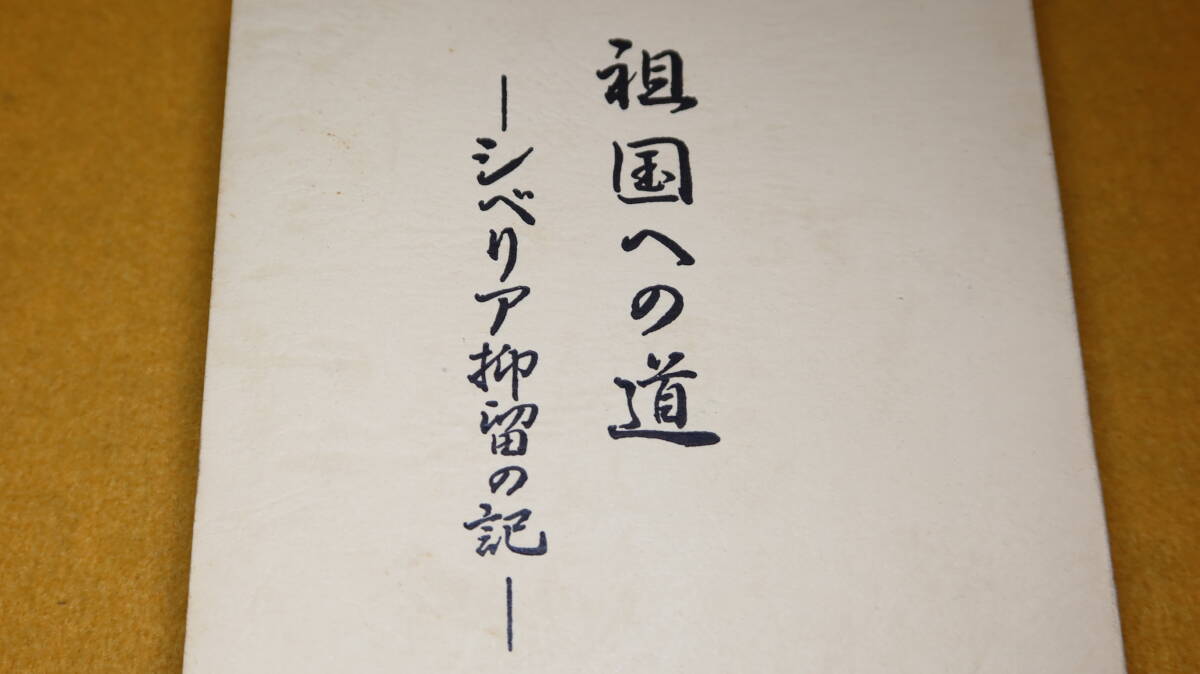 祖国への道
―シベリア抑留の記―